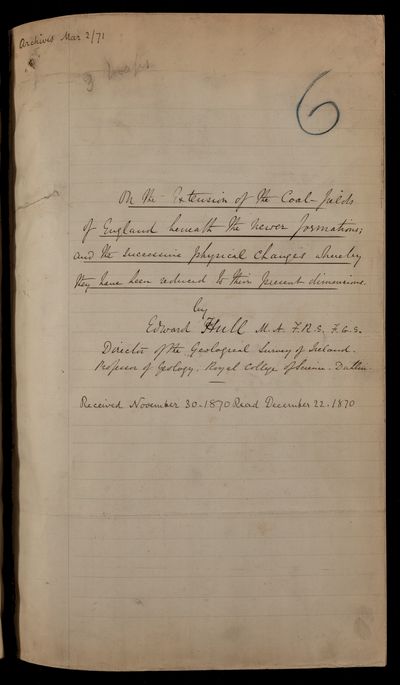 Archives Mar 2/71
6
On the Extension of the Coal-fields
of England beneath the newer formations;
and the successive physical changes whereby
they have been reduced to their present dimensions.
by
Edward Hull M.A. F.R.S. F.G.S.
Director of the Geological Survey of Ireland.
Professor of Geology, Royal College of Science. Dublin.
Received November 30. 1870 Read December 22. 1870